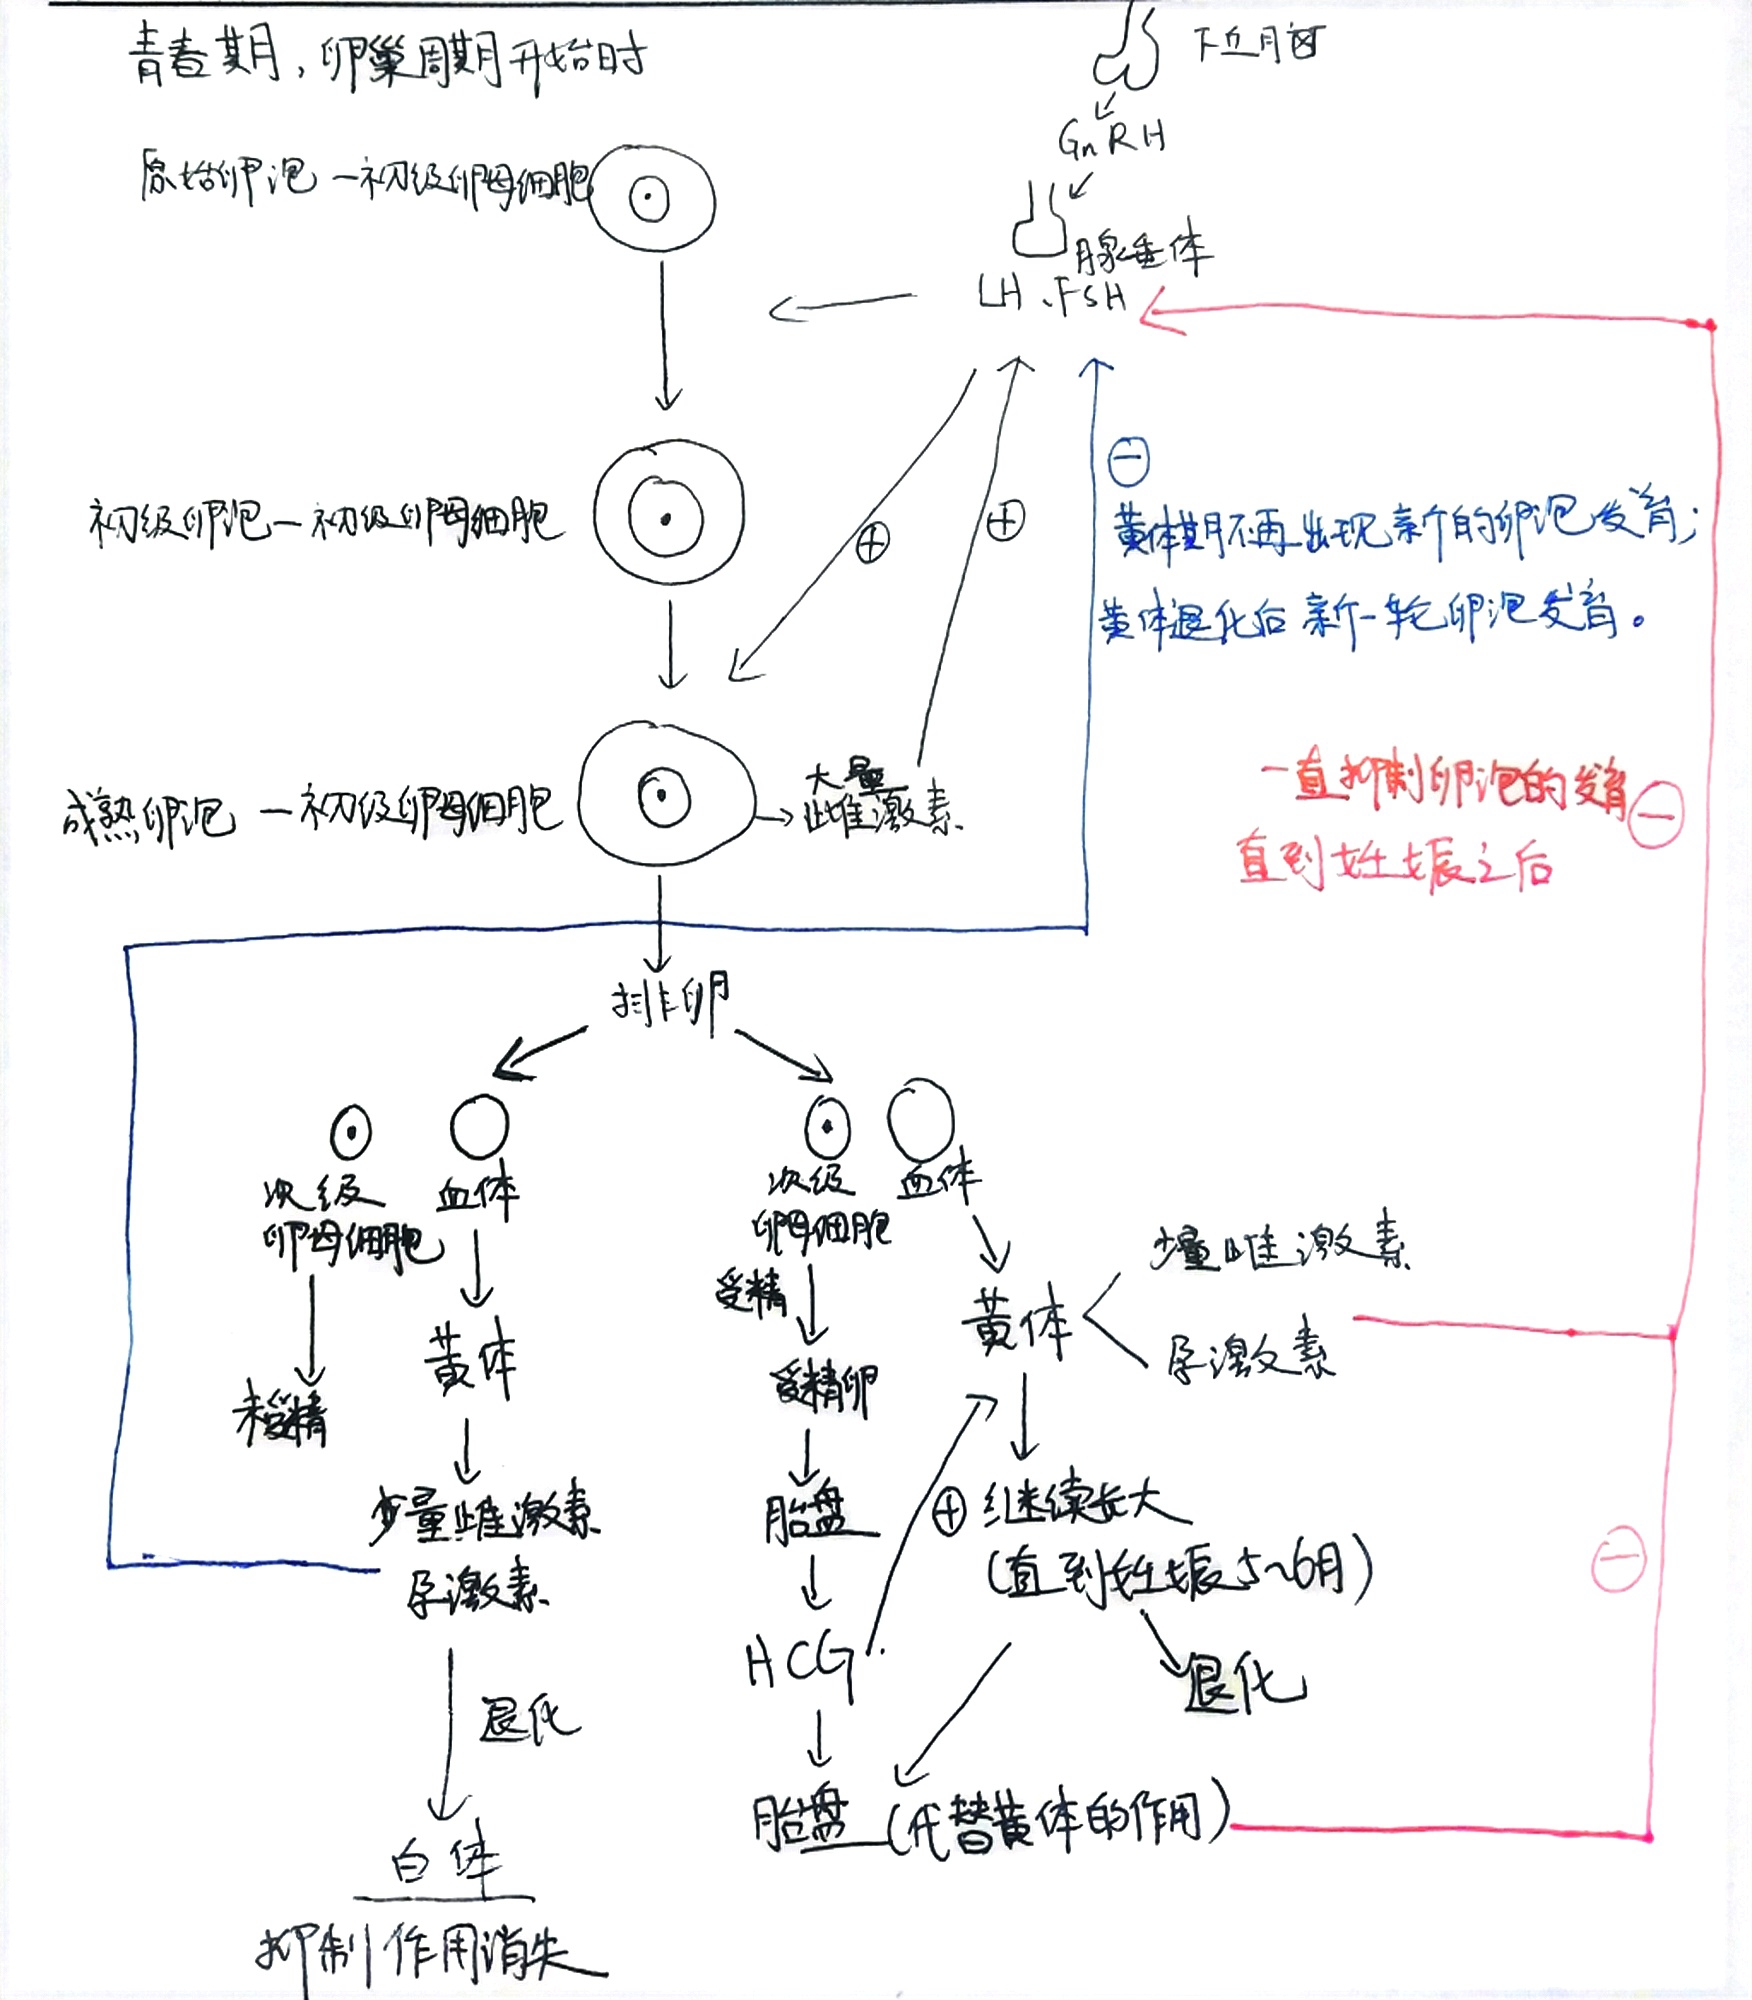 青春期，卵巢周期开始时
下丘脑
GnRH
原始卵泡—初级卵母细胞
腺垂体
LH、FSH
⊖
初级卵泡—初级卵母细胞
⊕
⊕
黄体期不再出现新的卵泡发育；
黄体退化后新一轮卵泡发育。
成熟卵泡—初级卵母细胞
大量
雌激素
一直抑制卵泡的发育
⊖
直到妊娠之后
排卵
次级
卵母细胞
血体
次级
卵母细胞
血体
未受精
黄体
受精
受精卵
黄体
少量雌激素
孕激素
少量雌激素
孕激素
胎盘
⊕
继续长大
(直到妊娠5~6月)
⊖
HCG
退化
退化
胎盘(代替黄体的作用)
白体
抑制作用消失